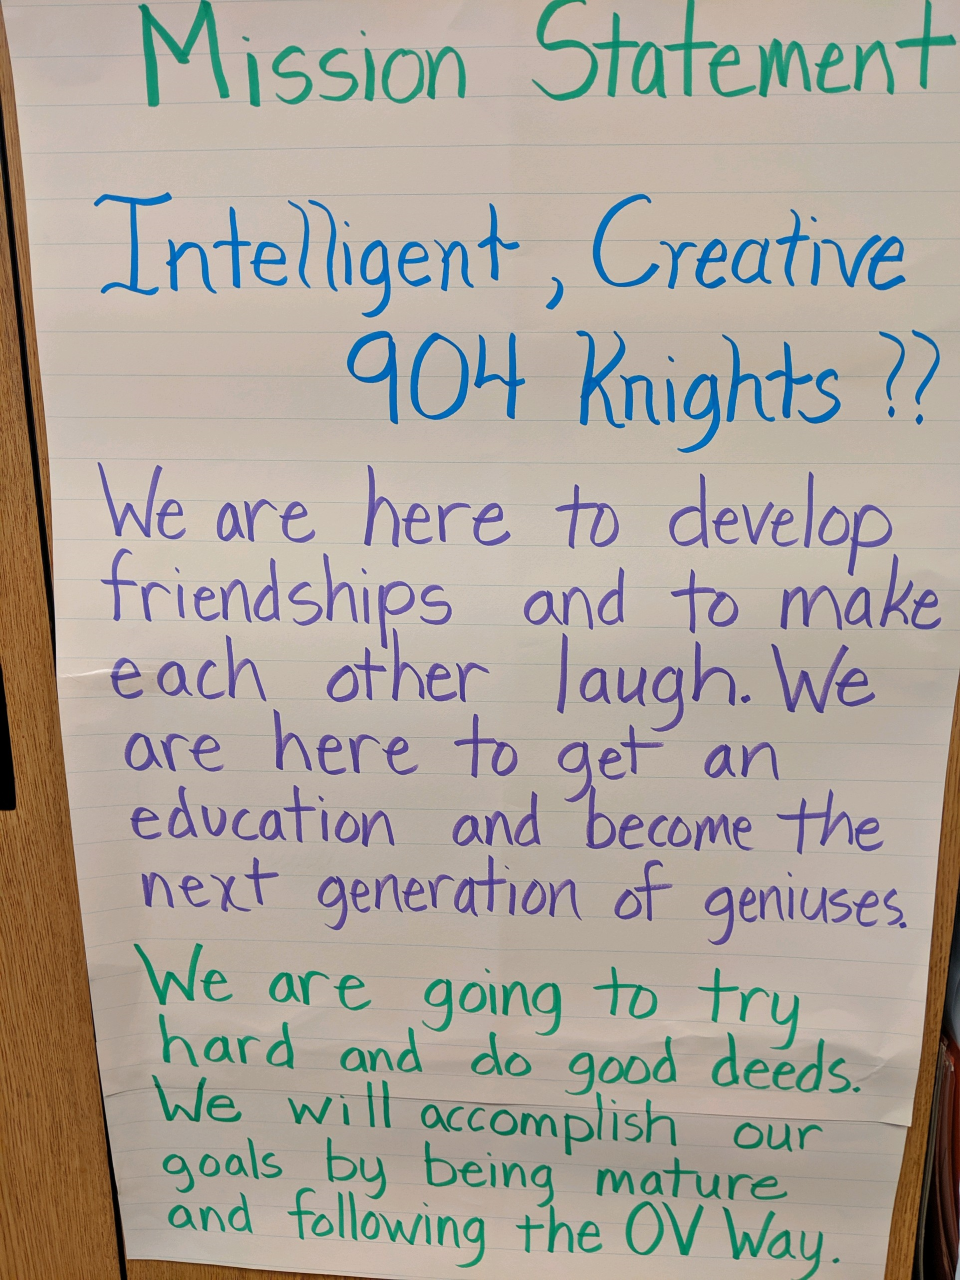 Mission Statement
Intelligent, Creative
904 Knights ??
We are here to develop
friendships and to make
each other laugh. We
are here to get an
education and become the
next generation of geniuses.
We are going to try
hard and do good deeds.
We will accomplish our
goals by being mature
and following the OV Way.